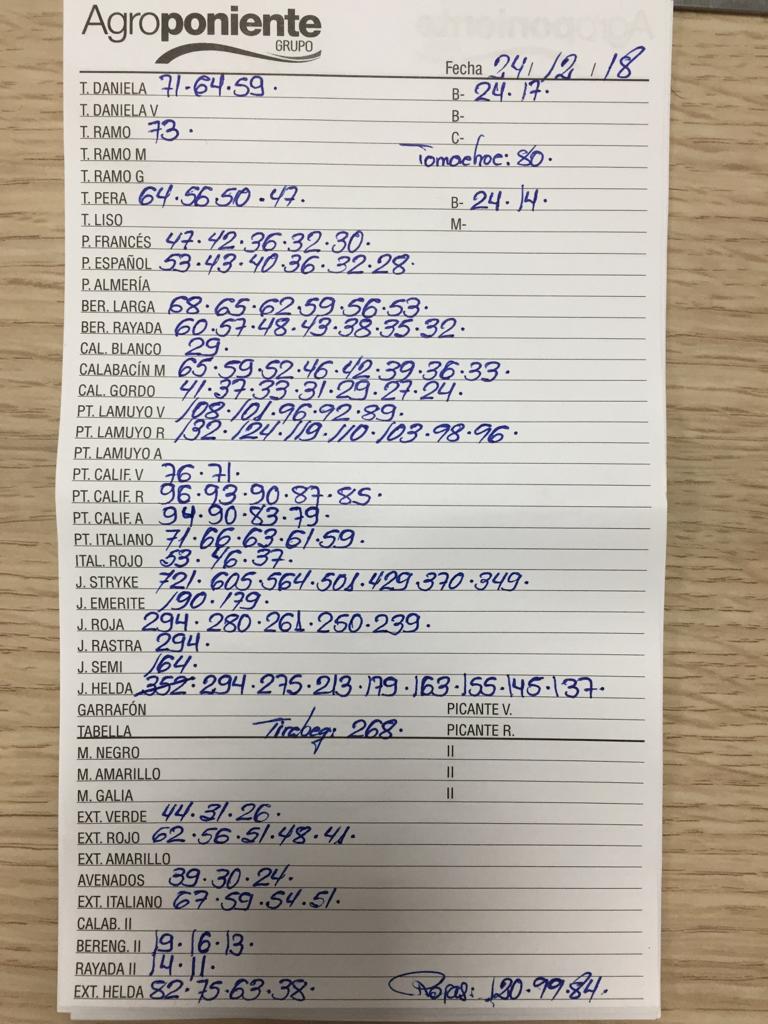 Agroponiente
GRUPO
Fecha 24/ 12 / 18
T. DANIELA 71·64·59· B- 24·17·
T. DANIELA V B-
T. RAMO 73· C-
T. RAMO M Tomachoc: 80·
T. RAMO G
T. PERA 64·56·50·47· B- 24·14·
T. LISO M-
P. FRANCÉS 47·42·36·32·30·
P. ESPAÑOL 53·43·40·36·32·28·
P. ALMERÍA
BER. LARGA 68·65·62·59·56·53·
BER. RAYADA 60·57·48·43·38·35·32·
CAL. BLANCO 29·
CALABACÍN M 65·59·52·46·42·39·36·33·
CAL. GORDO 41·37·33·31·29·27·24·
PT. LAMUYO V 108·101·96·92·89·
PT. LAMUYO R 132·124·119·110·103·98·96·
PT. LAMUYO A
PT. CALIF. V 76·71·
PT. CALIF. R 96·93·90·87·85·
PT. CALIF. A 94·90·83·79·
PT. ITALIANO 71·66·63·61·59·
ITAL. ROJO 53·46·37·
J. STRYKE 721·605·564·501·429·370·349·
J. EMERITE 190·179·
J. ROJA 294·280·261·250·239·
J. RASTRA 294·
J. SEMI 164·
J. HELDA 352·294·275·213·179·163·155·145·137·
GARRAFÓN PICANTE V.
TABELLA Tirabeq: 268· PICANTE R.
M. NEGRO II
M. AMARILLO II
M. GALIA II
EXT. VERDE 44·31·26·
EXT. ROJO 62·56·51·48·41·
EXT. AMARILLO
AVENADOS 39·30·24·
EXT. ITALIANO 67·59·54·51·
CALAB. II
BERENG. II 19·16·13·
RAYADA II 14·11·
EXT. HELDA 82·75·63·38· 120·99·84·